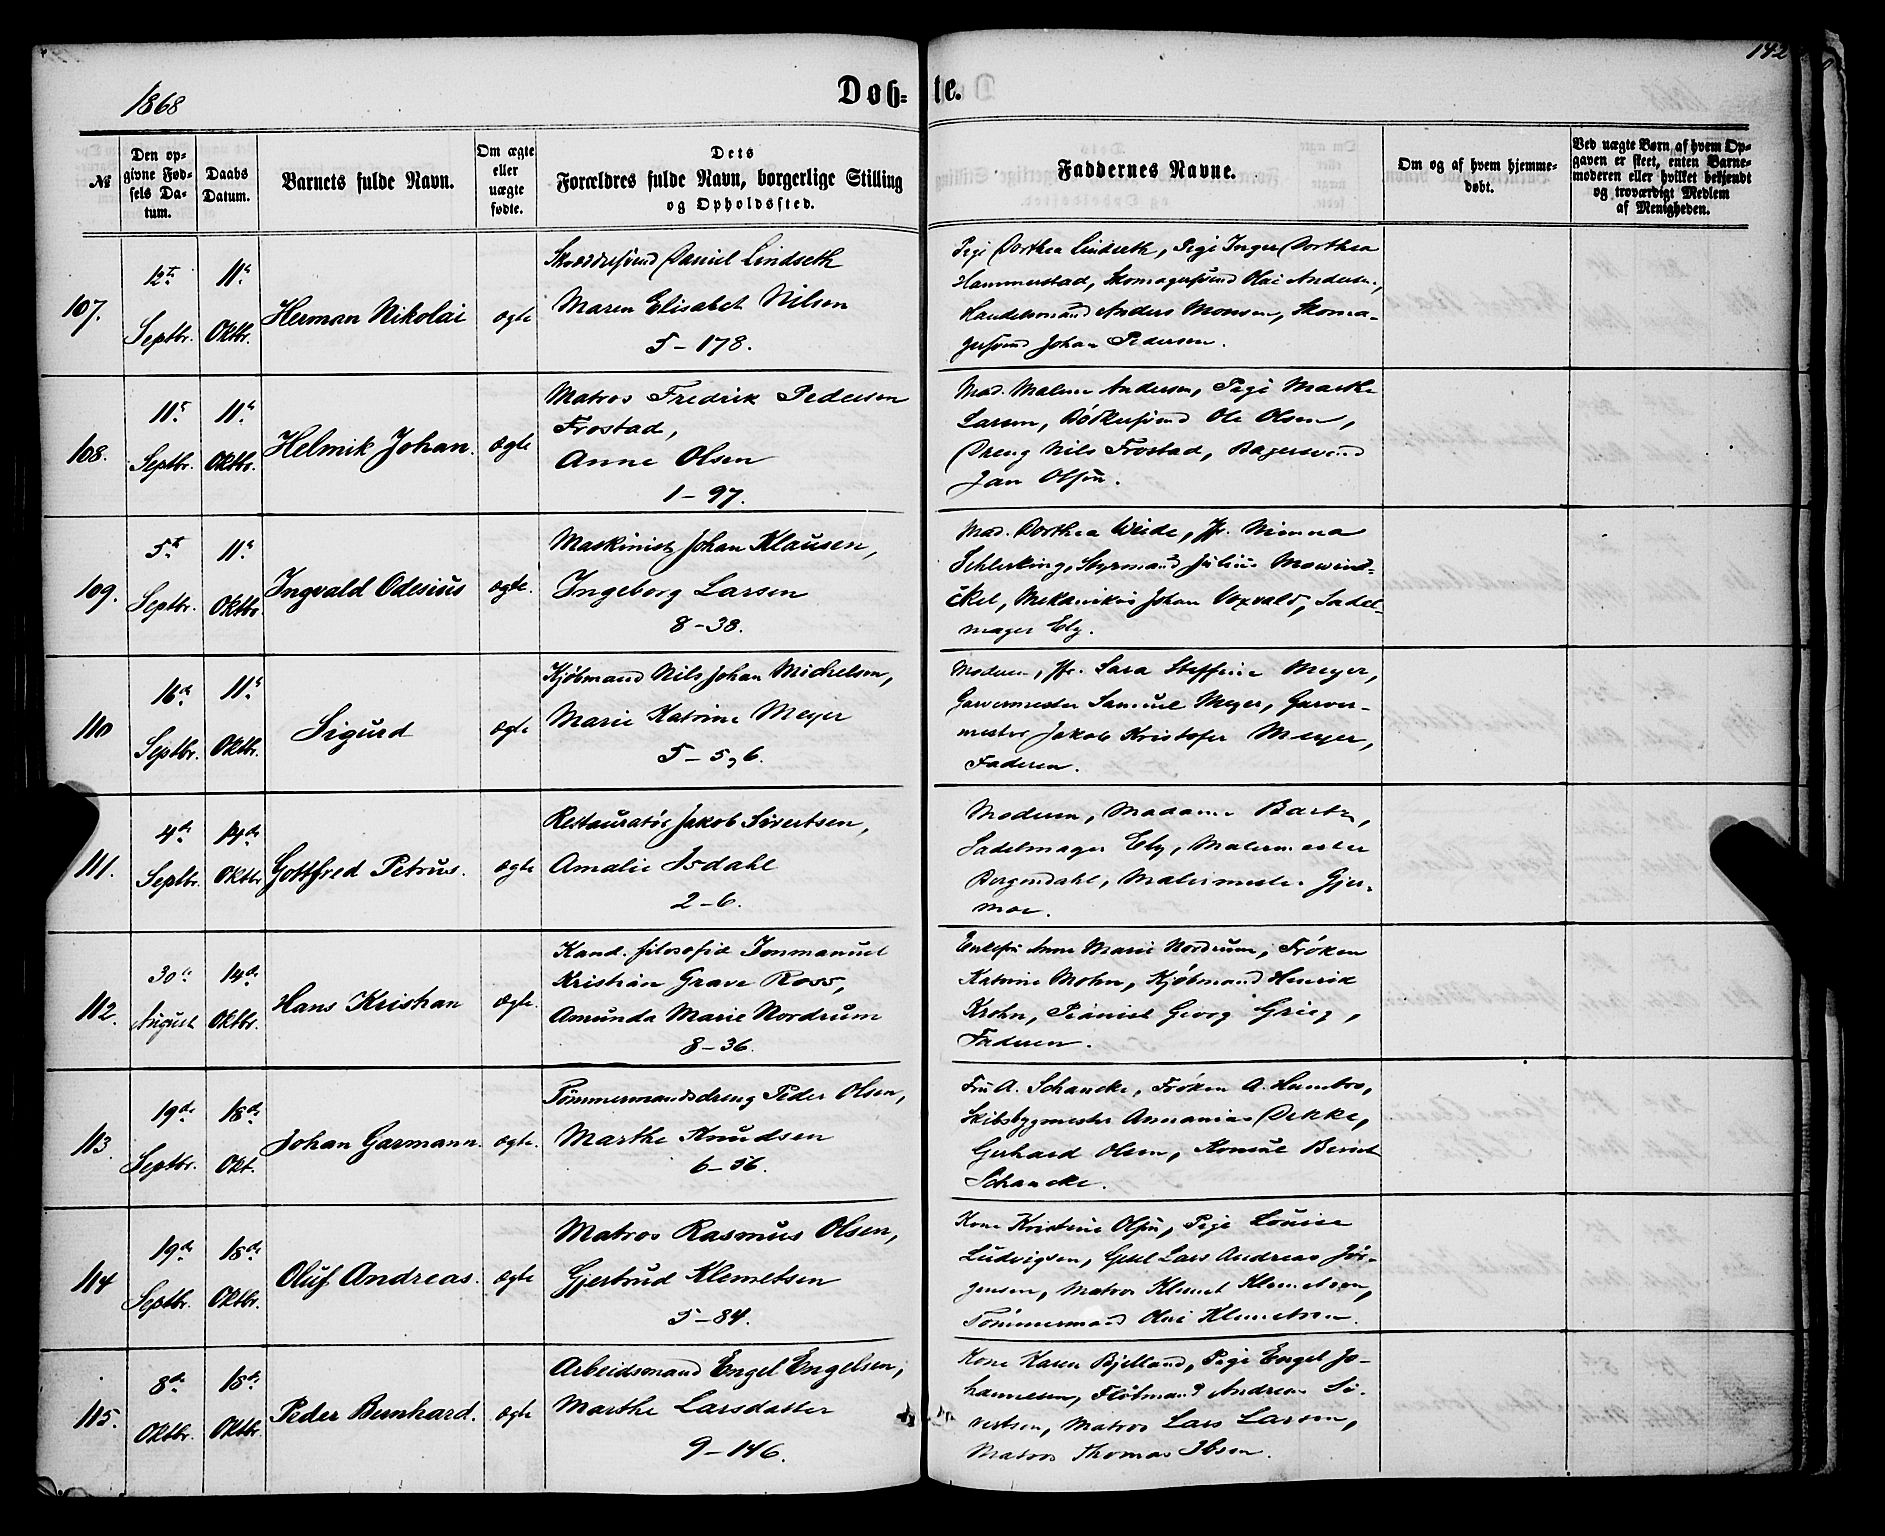 1868
Døb=
te.
142
№
Den op-
givne Fød-
sels Da-
tum.
Daabs
Datum.
Barnets fulde Navn.
Om ægte
eller
uægte
fødte.
Dets
Forældres fulde Navn, borgerlige Stilling
og Opholdssted.
Faddernes Navne.
Om og af hvem hjemme-
døbt.
Ved uægte Børn af hvem Op-
gaven er skeet, enten Barne-
moderen eller hvilket bekjendt
og troværdigt Medlem
af Menigheden.
107.
12te
Septbr.
11te
Oktbr.
Herman Nikolai
ægte
Daniel Lindseth
Maren Elisabet Nilsen
5-178.
Pige Dorthea Lindseth, Pige Inger Dorthea
Hammerstad, Skomagersvend Olai Andersen,
Handelsmand Anders Monsen, Skoma-
gersvend Johan Pedersen.
108.
11te
Septbr.
11te
Oktbr.
Helmik Johan.
ægte
Matros Fredrik Pedersen
Frostad,
Anne Olsen
1-97.
Mad. Malene Andersen, Pige Marthe
Larsen, Bødkersvend Ole Olsen,
Dreng Nils Frostad, Bagersvend
Jan Olsen.
109.
5te
Septbr.
11te
Oktbr.
Ingvald Odesius
ægte.
Maskinist Johan Klausen,
Ingeborg Larsen
8-38.
Mad. Dorthea Weide, Jfr. Minna
Styrmand Julius Mowind-
ckel, Mekanikus Johan Sadel-
mager Ely.
110
16de
Septbr.
11te
Oktbr.
Sigurd
ægte
Kjøbmand Nils Johan Michelsen,
Marie Katrine Meyer
5-5,6.
Moderen, Jfr. Sara Steffine Meyer,
Garvermester Samuel Meyer, Garver-
mester Jakob Kristofer Meyer,
Faderen.
111.
4de
Septbr.
14de
Oktbr.
Gottfred Petrus.
ægte
Restauratør Jakob Sivertsen,
Amalie Isdahl
2-6.
Moderen, Madame
Sadelmager Ely, Malermester
Bergendahl, Malermester Gjer-
moe.
112.
30te
August
14de
Oktbr.
Hans Kristian
ægte.
Kand. filosofiæ Immanuel
Kristian Grave Ross,
Amunda Marie Nordrum
8-36.
Anne Marie Nordrum, Frøken
Katrine Mohn, Kjøbmand Henrik
Krohn, Pianist Georg Grieg,
Faderen.
113.
19de
Septbr.
18de
Okt.
Johan Garmann.
ægte.
Tømmermandsdreng Peder Olsen,
Marthe Knudsen
6-56.
Fru A. Schancke, Frøken A. Hambro,
Skibsbygmester Annanias Dekke,
Gerhard Olsen, Konsul Bernt
Schancke.
114
19de
Septbr.
18de
Oktbr.
Oluf Andreas.
ægte
Matros Rasmus Olsen,
Gjertrud Klemetsen
5-84.
Kone Kristine Olsen, Pige Louise
Ludvigsen, Lars Andreas Jør-
gensen, Matros Klemet Klemetsen,
Tømmermand Olai Klemetsen.
115.
8de
Oktbr.
18de
Oktbr.
Peder Bernhard.
ægte
Arbeidsmand Engel Engelsen,
Marthe Larsdatter
9-146.
Kone Karen Bjelland, Pige Engel Jo-
hannesen, Fløtmand Andreas Si-
vertsen, Matros Lars Larsen,
Matros Thomas Ibsen.